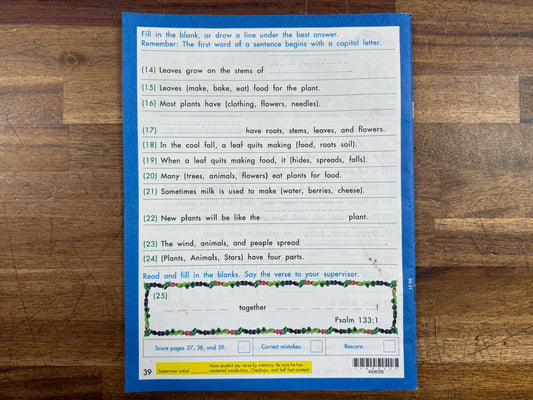 Fill in the blank, or draw a line under the best answer.
Remember: The first word of a sentence begins with a capital letter.
(14) Leaves grow on the stems of .
(15) Leaves (make, bake, eat) food for the plant.
(16) Most plants have (clothing, flowers, needles).
(17) have roots, stems, leaves, and flowers.
(18) In the cool fall, a leaf quits making (food, roots soil).
(19) When a leaf quits making food, it (hides, spreads, falls).
(20) Many (trees, animals, flowers) eat plants for food.
(21) Sometimes milk is used to make (water, berries, cheese).
(22) New plants will be like the plant.
(23) The wind, animals, and people spread .
(24) (Plants, Animals, Stars) have four parts.
Read and fill in the blanks. Say the verse to your supervisor.
(25)
together !
Psalm 133:1
Score pages 37, 38, and 39. Correct mistakes. Rescore.
39 Supervisor initial
Have student say verse by memory. Be sure he has
mastered vocabulary, Checkups, and Self Test content.
409026